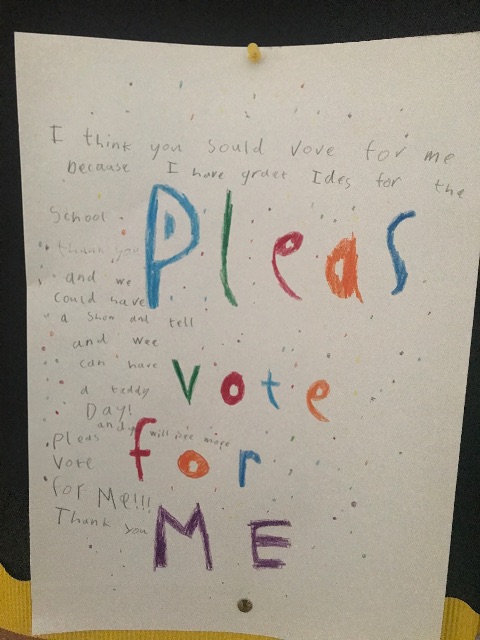 I think you sould vove for me
because I have graet Ides for the
School.
thank you
and we
could have
a Show and tell
and wee
can have
a teddy
Day!
and
will more
pleas
vote
for Me!!!
Thank you
Pleas
vote
for
ME